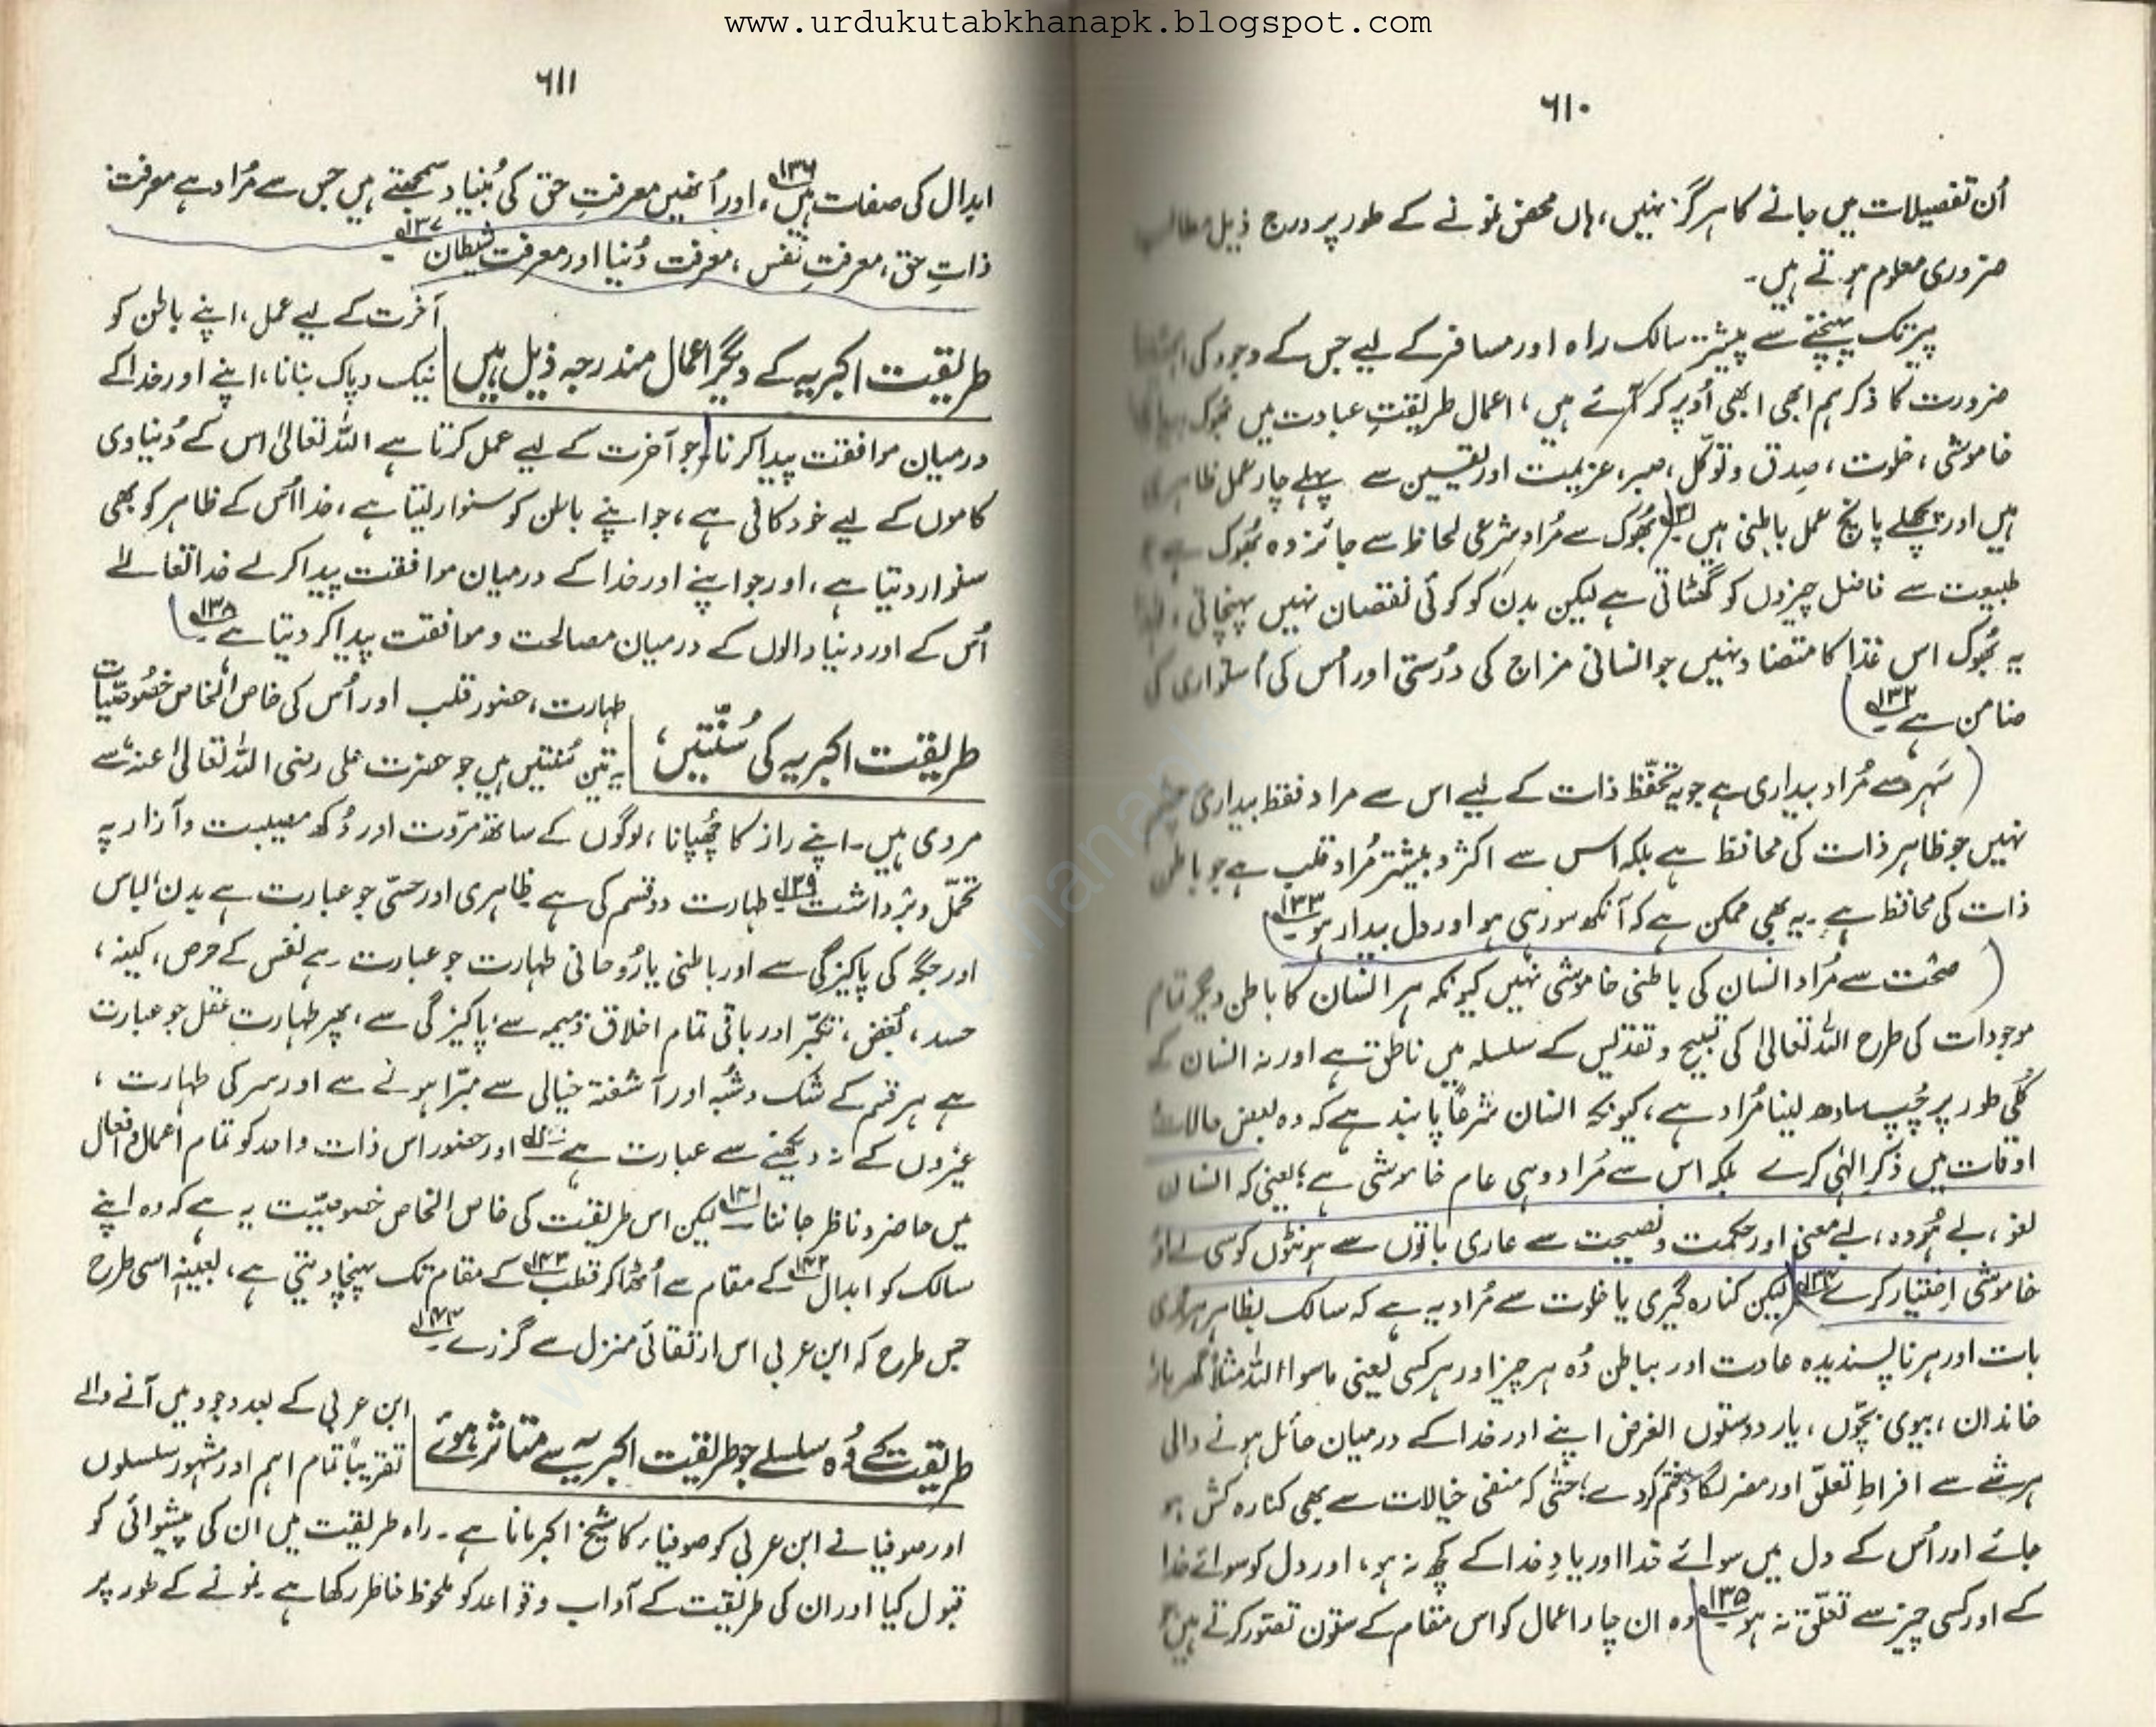 www.urdukutabkhanapk.blogspot.com
۶۱۰
اُن تفصیلات میں جانے کا ہرگز نہیں، ہاں محض نمونے کے طور پر درج ذیل مطالب
ضروری معلوم ہوتے ہیں۔
پیر تک پہنچنے سے پیشتر سالک راہ اور مسافر کے لیے جس کے وجود کی
ضرورت کا ذکر ہم ابھی ابھی اُوپر کر آئے ہیں، اعمال طریقتِ عبادت ہیں بھُوک
خاموشی، خلوت، صِدق و توکّل، صبر، عزیمت اور یقین سے پہلے چار عمل ظاہری
ہیں اور پچھلے پانچ عمل باطنی ہیں ۱۳۱؎ بھُوک سے مُراد شرعی لحاظ سے جائز وہ بھُوک ہے
طبیعت سے فاضل چیزوں کو گھٹاتی ہے لیکن بدن کو کوئی نقصان نہیں پہنچاتی،
یہ بھُوک اس غذا کا متضاد نہیں جو انسانی مزاج کی دُرستی اور اُس کی اُستواری کی
ضامن ہے ۱۳۲؎
سَہر سے مُراد بیداری ہے جو تحفّظ ذات کے لیے اس سے مراد فقط بیداری چشم
نہیں جو ظاہر ذات کی محافظ ہے بلکہ اس سے اکثر و بیشتر مُراد قلب ہے جو باطن
ذات کی محافظ ہے۔ یہ بھی ممکن ہے کہ آنکھ سو رہی ہو اور دل بیدار ہو ۱۳۳؎
صمُت سے مُراد انسان کی باطنی خاموشی نہیں کیونکہ ہر انسان کا باطن دیگر تمام
موجودات کی طرح اللہ تعالیٰ کی تسبیح و تقدیس کے سلسلہ میں ناطق ہے اور نہ انسان کے
کُلّی طور پر چُپ سادھ لینا مُراد ہے، کیونکہ انسان شرعاً پابند ہے کہ وہ بعض حالات
اوقات میں ذکرِ الٰہی کرے بلکہ اس سے مُراد وہی عام خاموشی ہے؛ یعنی کہ انسان
لغو، بے ہُودہ، بے معنی اور حکمت و نصیحت سے عاری باتوں سے ہونٹوں کو سی لے اور
خاموشی اختیار کرے ۱۳۴؎ لیکن کنارہ گیری یا خلوت سے مُراد یہ ہے کہ سالک بظاہر ہر بُری
بات اور ہر ناپسندیدہ عادت اور بباطن وُہ ہر چیز اور ہر کسی یعنی ماسوا اللہ مثلاً گھر بار
خاندان، بیوی بچّوں، یار دوستوں الغرض اپنے اور خدا کے درمیان حائل ہونے والی
ہر شے سے افراطِ تعلّق اور مضر لگاؤ ختم کر دے؛ حتّٰی کہ منفی خیالات سے بھی کنارہ کش ہو
جائے اور اُس کے دل میں سوائے خدا اور یادِ خدا کے کچھ نہ ہو، اور دل کو سوائے خدا
کے اور کسی چیز سے تعلّق نہ ہو ۱۳۵؎ وہ ان چار اعمال کو اس مقام کے ستون تصّور کرتے ہیں
۶۱۱
ابدال کی صفات ہیں ۱۳۶؎، اور اُنھیں معرفتِ حق کی بُنیاد سمجھتے ہیں جس سے مُراد ہے معرفت
ذاتِ حق، معرفتِ نفس، معرفت دُنیا اور معرفت شیطان ۱۳۷؎۔
طریقت اکبریہ کے دیگر اعمال مندرجہ ذیل ہیں
آخرت کے لیے عمل، اپنے باطن کو
نیک و پاک بنانا، اپنے اور خدا کے
درمیان موافقت پیدا کرنا، جو آخرت کے لیے عمل کرتا ہے اللہ تعالیٰ اس کے دُنیاوی
کاموں کے لیے خود کافی ہے، جو اپنے باطن کو سنوار لیتا ہے، خدا اُس کے ظاہر کو بھی
سنوار دیتا ہے، اور جو اپنے اور خدا کے درمیان موافقت پیدا کر لے خدا تعالےٰ
اُس کے اور دنیا والوں کے درمیان مصالحت و موافقت پیدا کر دیتا ہے ۱۳۸؎
طریقت اکبریہ کی سُنّتیں،
طہارت، حضور قلب اور اُس کی خاص الخاص خصُوصیّات
یہ تین سُنتیں ہیں جو حضرت علی رضی اللہ تعالیٰ عنہ، سے
مروی ہیں۔ اپنے راز کا چھُپانا، لوگوں کے ساتھ مروّت اور دُکھ مصیبت و آزار پہ
تحمّل و برداشت ۱۳۹؎ طہارت دو قسم کی ہے ظاہری اور حسّی جو عبارت ہے بدن، لباس
اور جگہ کی پاکیزگی سے اور باطنی یا رُوحانی طہارت جو عبارت ہے نفس کے حرص، کینہ،
حسد، بُغض، تکبّر اور باقی تمام اخلاق ذمیمہ سے پاکیزگی سے، پھر طہارت عقل جو عبارت
ہے ہر قسم کے شک و شُبہ اور آشفتہ خیالی سے مبرّا ہونے سے اور سر کی طہارت،
غیروں کے نہ دیکھنے سے عبارت ہے ۱۴۰؎ اور حضور اس ذات واحد کو تمام اعمال و افعال
میں حاضر و ناظر جاننا ۱۴۱؎ لیکن اس طریقت کی خاص الخاص خصوصیّت یہ ہے کہ وہ اپنے
سالک کو ابدال ۱۴۲؎ کے مقام سے اُٹھا کر قطب ۱۴۳؎ کے مقام تک پہنچا دیتی ہے، بعینہٖ اسی طرح
جس طرح کہ ابن عربی اس ارتقائی منزل سے گزرے ۱۴۴؎۔
طریقت کے وُہ سلسلے جو طریقت اکبریہ سے متاثر ہوئے
ابن عربی کے بعد وجود میں آنے والے
تقریباً تمام اہم اور مشہور سلسلوں
اور صوفیا نے ابن عربی کو صوفیاء کا شیخ اکبر مانا ہے۔ راہ طریقت میں ان کی پیشوائی کو
قبول کیا اور ان کی طریقت کے آداب و قواعد کو ملحوظ خاطر رکھا ہے۔ نمونے کے طور پر